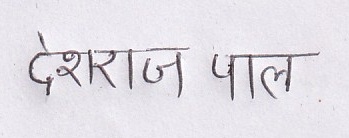 देशराज पाल